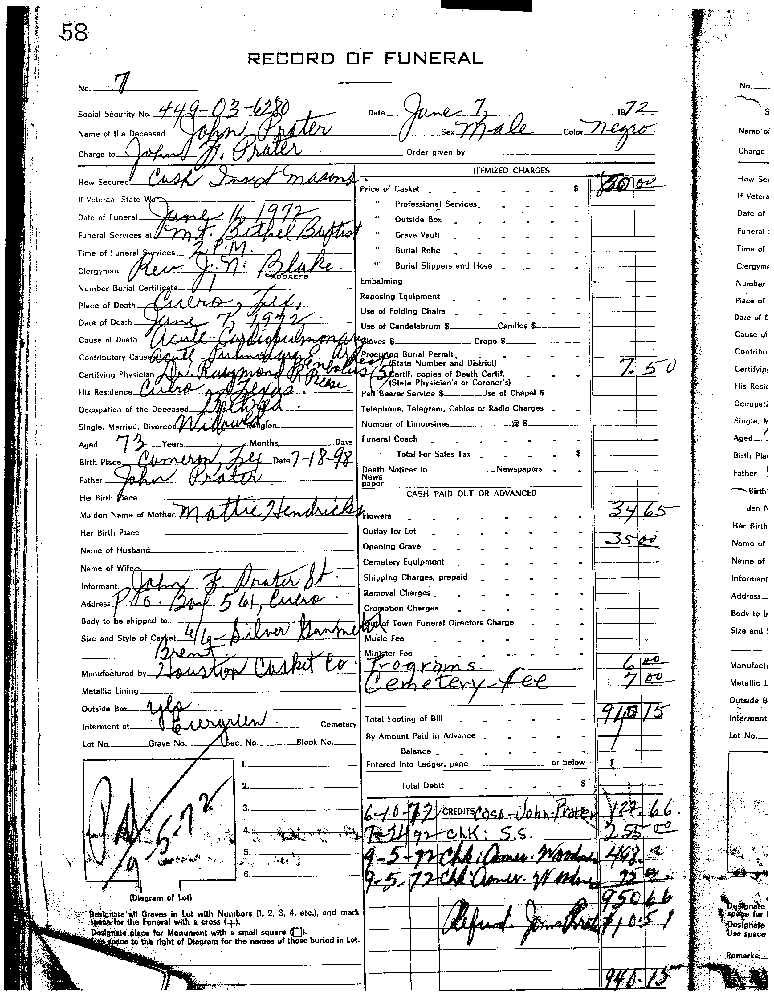 58
RECORD OF FUNERAL
No. 7
Social Security No. 449-03-6280 Date June 7, 1972
Name of the Deceased John Prater Sex Male Color Negro
Charge to John F. Prater Order given by
How Secured Cash Insot Masons
If Veteran, State War
Date of Funeral June 11, 1972
Funeral Services at Mt. Bethel Baptist
Time of Funeral Services 2 P.M.
Clergyman Rev. J. N. Blake
Number Burial Certificate
Place of Death Cuero, Tex.
Date of Death June 7 1972
Cause of Death Acute Cardiopulmonary
Contributory Cause Acute Pulmonary
Certifying Physician Dr. Raymond Reese
His Residence Cuero, Texas
Occupation of the Deceased Retired
Single, Married, Divorced Widowed Religion
Aged 73 Years Months Days
Birth Place Cameron, Tex Date 7-18-98
Father John Prater
His Birth Place
Maiden Name of Mother Mattie Hendricks
Her Birth Place
Name of Husband
Name of Wife
Informant John F. Prater
Address P.O. Box 561, Cuero
Body to be shipped to
Size and Style of Casket 6/6-Silver
Manufactured by Houston Casket Co
Metallic Lining
Outside Box yes
Interment at Evergreen Cemetery
Lot No. Grave No. Sec. No. Block No.
1.
2.
3.
4.
5.
6.
Pd 9-5-72
(Diagram of Lot)
Designate all Graves in Lot with Numbers (1, 2, 3, 4, etc.), and mark
space for the Funeral with a cross (+).
Designate place for Monument with a small square (□).
Use space to the right of Diagram for the names of those buried in Lot.
ITEMIZED CHARGES
Price of Casket $
" Professional Services
" Outside Box
" Grave Vault
" Burial Robe
" Burial Slippers and Hose
Embalming
Reposing Equipment
Use of Folding Chairs
Use of Candelabrum $ Candles $
Gloves $ Crape $
Procuring Burial Permit
(State Number and District)
Certif. copies of Death Certif. 7.50
(State Physician's or Coroner's)
Pall Bearer Service $ Use of Chapel $
Telephone, Telegram, Cables or Radio Charges
Number of Limousines @ $
Funeral Coach
Total For Sales Tax $
Death Notices in Newspapers
News
paper
CASH PAID OUT OR ADVANCED
Flowers 34 65
Outlay for Lot
Opening Grave 35 00
Cemetery Equipment
Shipping Charges, prepaid
Removal Charges
Cremation Charges
Out of Town Funeral Directors Charge
Music Fee
Minister Fee
Programs 6 00
Cemetery Fee 7 00
Total Footing of Bill 940 15
By Amount Paid in Advance
Balance
Entered into Ledger, page or below $
Total Debts $
6-10-72 CREDITS Cash-John Prater 127.66
7-24-72 Chk: S.S. 255 00
9-5-72 Chk:
9-5-72 Chk
950 66
Refund 10 51
940.15